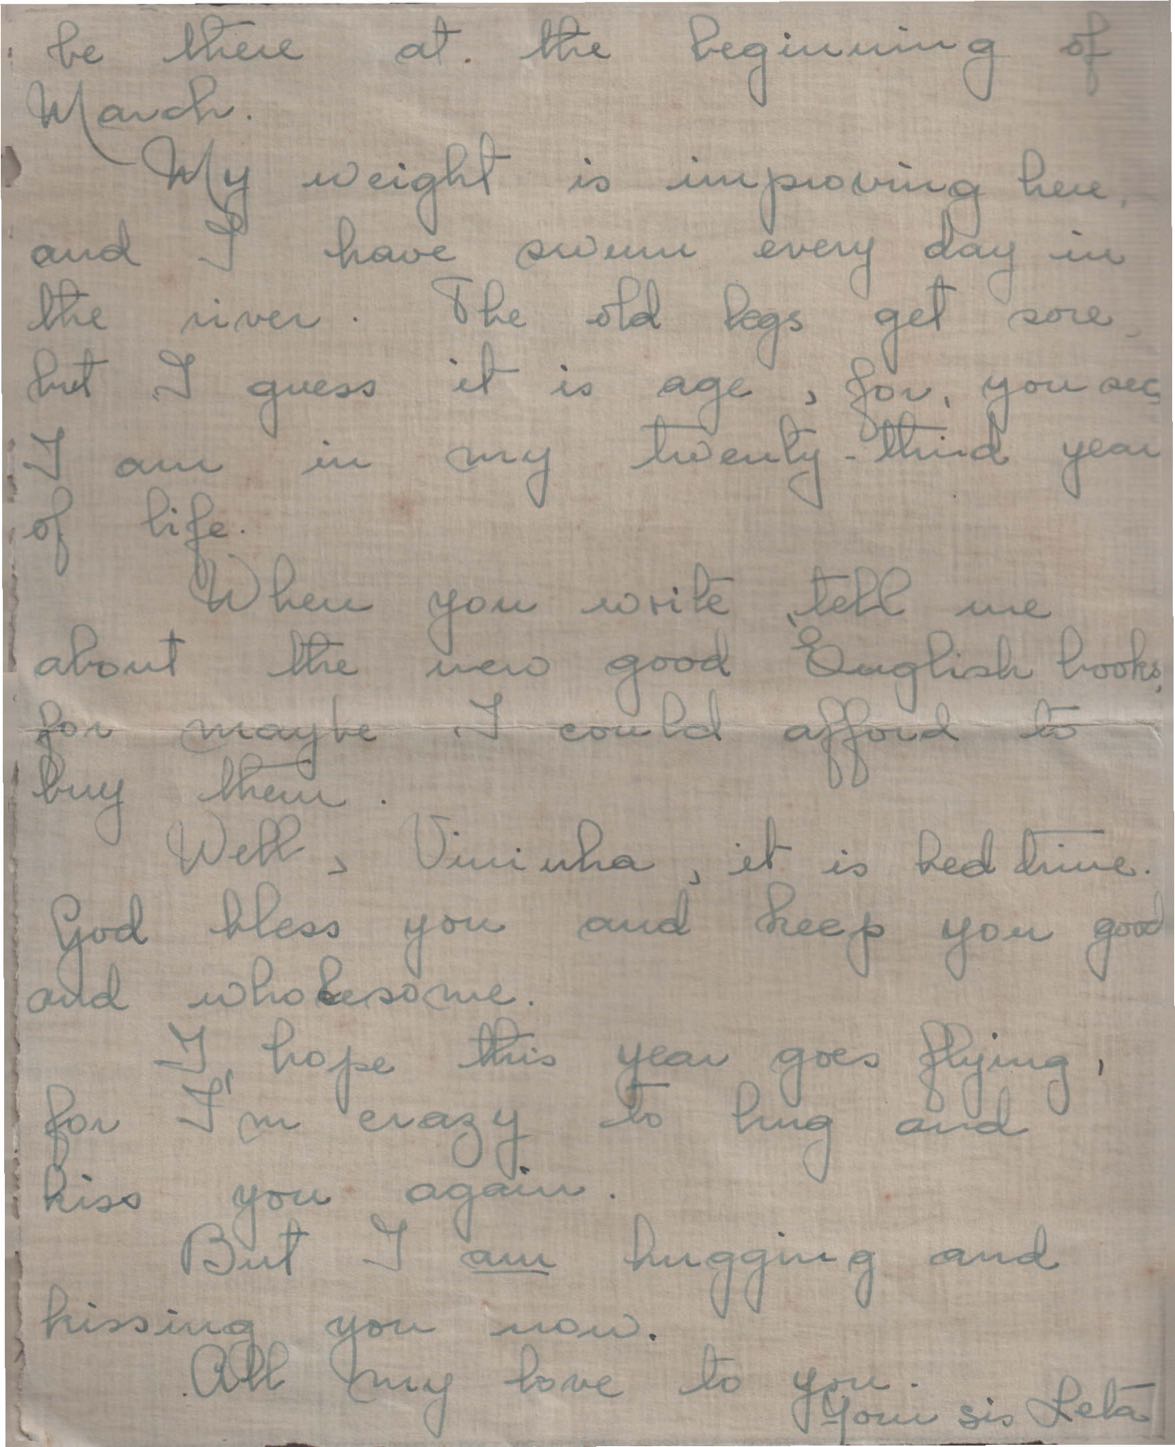 be there at. the beginning of
March.
My weight is improving here,
and I have swum every day in
the river. The old legs get sore
but I guess it is age, for, you see,
I am in my twenty-third year
of life.
When you write, tell me
about the new good English books,
for maybe I could afford to
buy them.
Well, Vininha, it is bed time.
God bless you and keep you good
and wholesome.
I hope this year goes flying,
for I'm crazy to hug and
kiss you again.
But I am hugging and
kissing you now.
All my love to you.
Your sis Leta